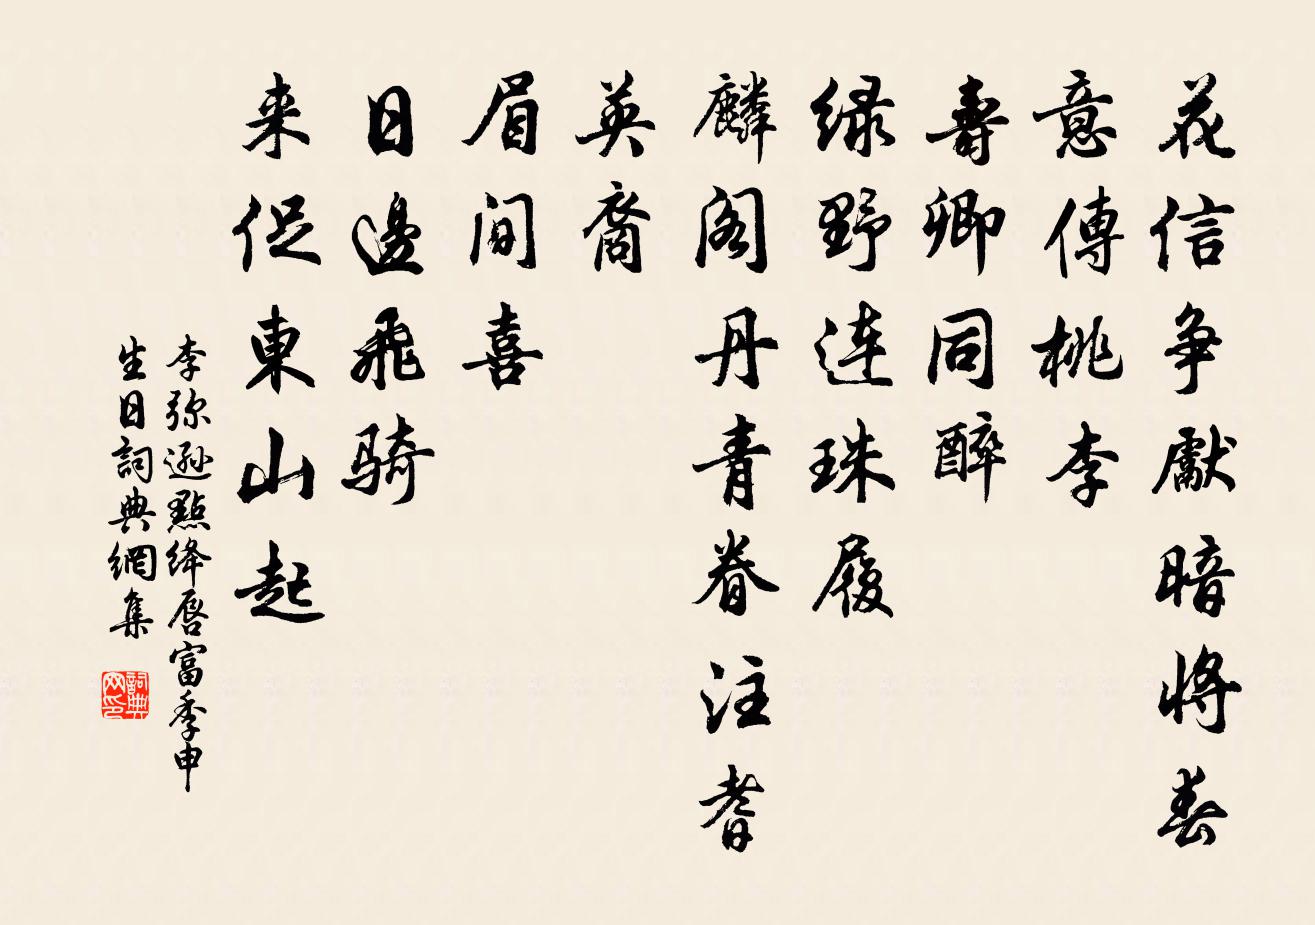 花信争獻暗將春
意傳桃李
壽卿同醉
緑野連珠履
麟阁丹青眷注耆
英裔
眉間喜
日邊飛騎
来促東山起
李弥遜點绛唇富季申
生日詞典網集
詞典
网印